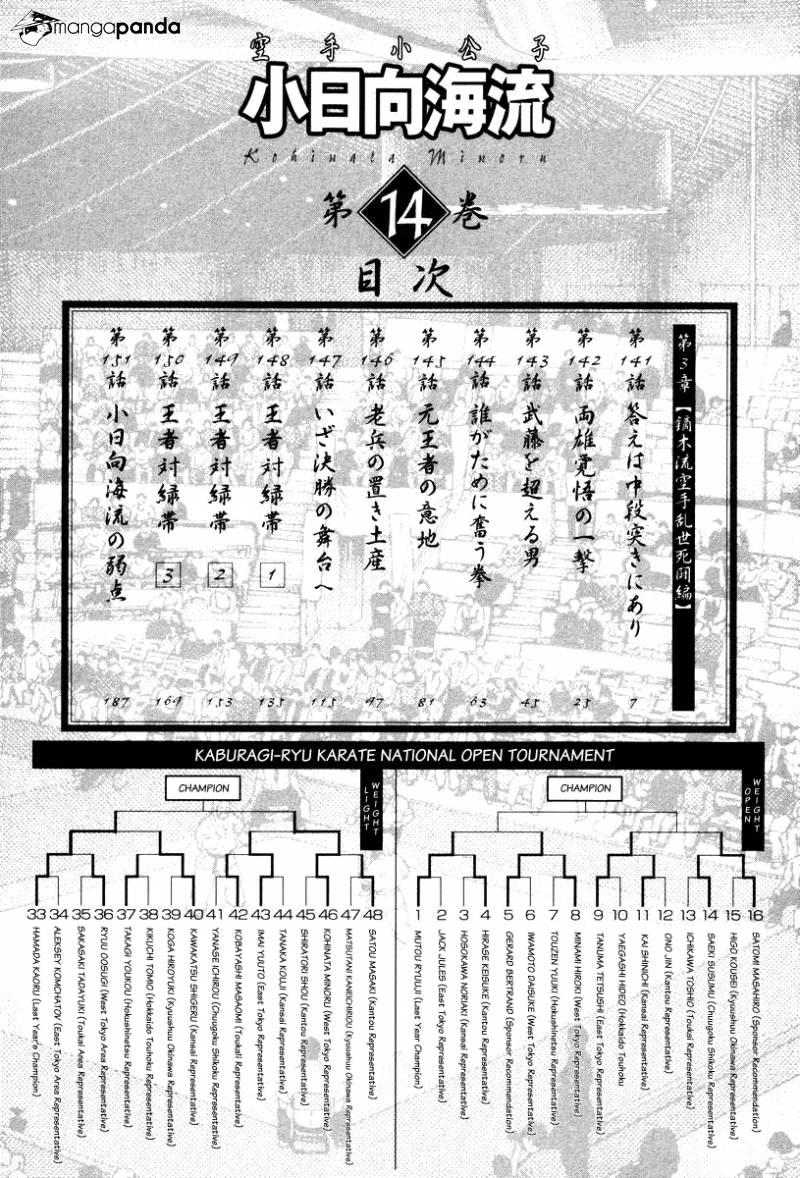 mangapanda
空手小公子
小日向海流
Kohinata Minoru
第14巻
目次
第3章【鏑木流空手乱世死闘編】
第141話 答えは中段突きにあり 7
第142話 両雄覚悟の一撃 25
第143話 武藤を超える男 45
第144話 誰がために奮う拳 63
第145話 元王者の意地 81
第146話 老兵の置き土産 97
第147話 いざ決勝の舞台へ 115
第148話 王者対緑帯 1 135
第149話 王者対緑帯 2 153
第150話 王者対緑帯 3 169
第151話 小日向海流の弱点 187
KABURAGI-RYU KARATE NATIONAL OPEN TOURNAMENT
CHAMPION
LIGHT WEIGHT
33 HAMADA KAORU (Last Year's Champion)
34 ALEKSEY KOMCHATOV (East Tokyo Area Representative)
35 SAKASAKI TADAYUKI (Toukai Area Representative)
36 RYUU OOSUGI (West Tokyo Area Representative)
37 TAKAGI YOUKOU (Hokushinetsu Representative)
38 KIKUCHI TOMIO (Hokkaido Touhoku Representative)
39 KOGA HIROYUKI (Kyuushuu Okinawa Representative)
40 KAWAKATSU SHIGERU (Kansai Representative)
41 YANASE ICHIROU (Chuugoku Shikoku Representative)
42 KOBAYASHI MASAOMI (Toukai Representative)
43 IMAI YUUTO (East Tokyo Representative)
44 TANAKA KOUJI (Kansai Representative)
45 SHIRATORI SHOU (Kantou Representative)
46 KOHINATA MINORU (West Tokyo Representative)
47 MATSUTANI KANEICHIROU (Kyuushuu Okinawa Representative)
48 SATOU MASAKI (Kantou Representative)
CHAMPION
OPEN WEIGHT
1 MUTOU RYUUJI (Last Year Champion)
2 JACK JULES (East Tokyo Representative)
3 HOSOKAWA NORIAKI (Kansai Representative)
4 HIRASE KEISUKE (Kantou Representative)
5 GERARD BERTRAND (Sponsor Recommendation)
6 IWAMOTO DAISUKE (West Tokyo Representative)
7 TOUZEN YUUKI (Hokushinetsu Representative)
8 MINAMI HIROKI (West Tokyo Representative)
9 TANUMA TETSUSHI (East Tokyo Representative)
10 YAEGASHI HIDEO (Hokkaido Touhoku
11 KAI SHINICHI (Kansai Representative)
12 ONO JIN (Kantou Representative)
13 ICHIKAWA TOSHIO (Toukai Representative)
14 SAEKI SUSUMU (Chuugoku Shikoku Representative)
15 HIGO KOUSEI (Kyuushuu Okinawa Representative)
16 SATOMI MASAHIRO (Sponsor Recommendation)